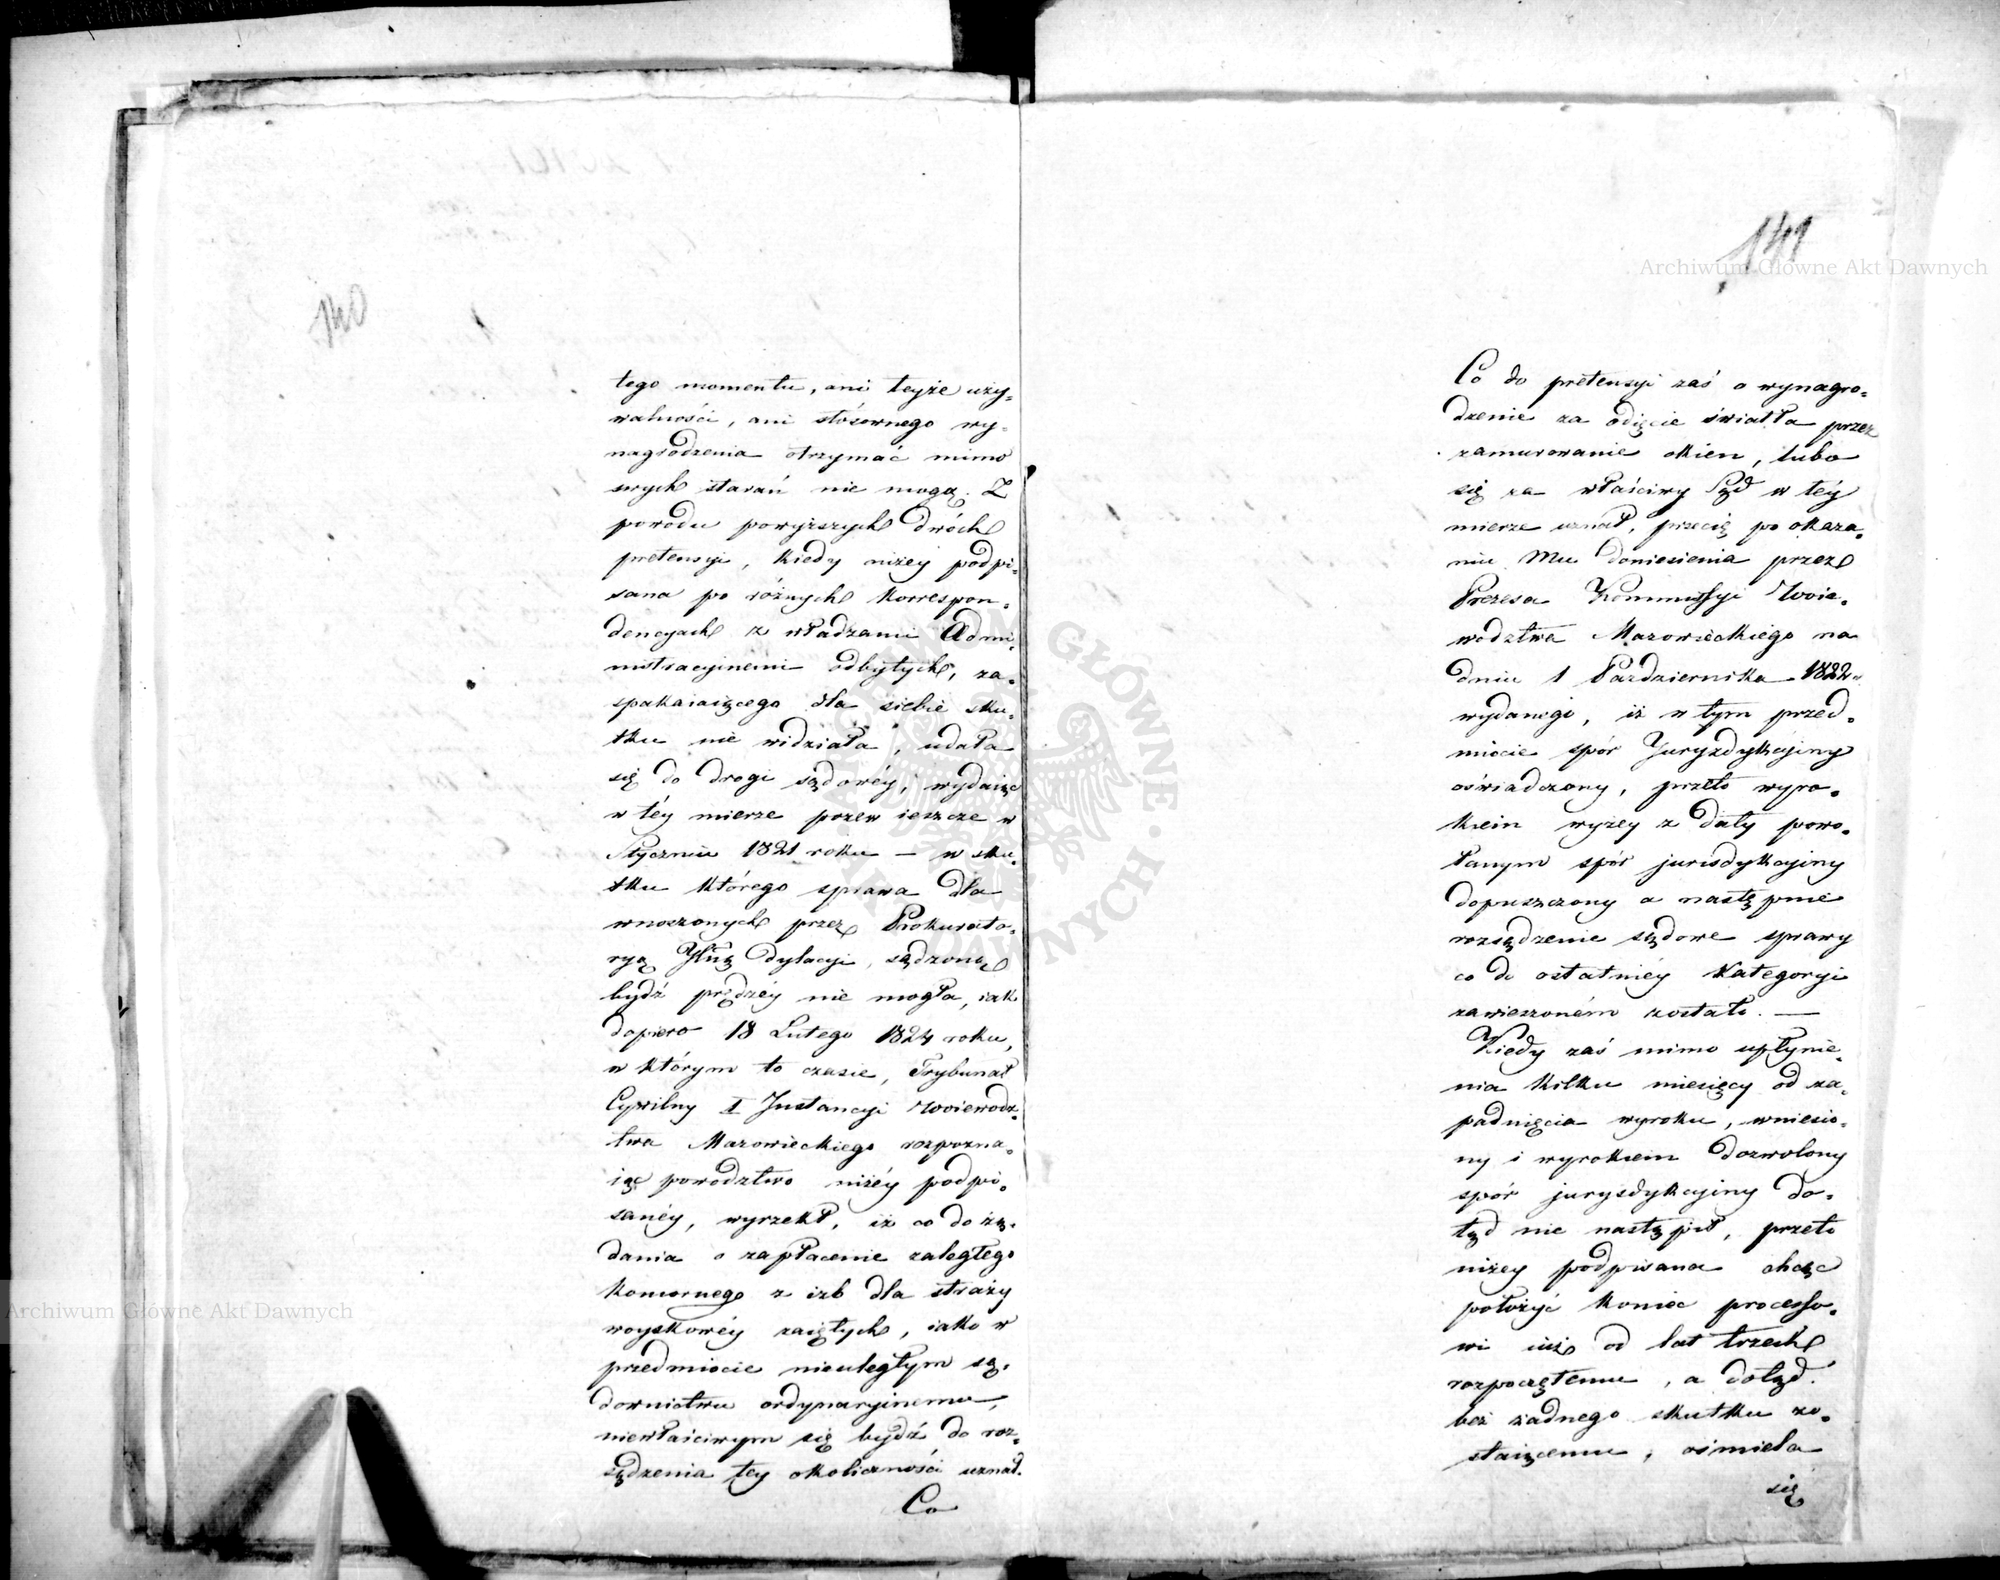 140
tego momentu, ani teyże uży=
walności, ani stósownego wy=
nagrodzenia otrzymać mimo
swych starań nie mogą. Z
powodu powyższych dwóch
pretensyi, kiedy niżey podpi=
sana po różnych korrespon=
dencyach z władzami Admi=
nistracyinemi odbytych, za=
spakaiaiącego dla siebie sku=
tku nie widziała, udała
się do drogi sądowéy, wydaiąc
w téy mierze pozew ieszcze w
Styczniu 1821 roku — w sku=
tku którego sprawa dla
wnoszonych przez Prokurato=
ryą Jłną dylacyi, sądzoną
bydź prędzéy nie mogła, iak
dopiero 18 Lutego 1824 roku,
w którym to czasie, Trybunał
Cywilny I Instancyi Woiewodz=
twa Mazowieckiego rozpozna=
iąc powodztwo niżéy podpi=
sanéy, wyrzekł, iż co do żą=
dania o zapłacenie zaległego
komornego z izb dla straży
woyskowéy zaiętych, iako w
przedmiocie nieuległym są=
downictwu ordynaryinemu,
niewłaściwym się bydź do roz=
sądzenia tey okoliczności uznał.
Co
141
Co do pretensyi zaś o wynagro=
dzenie za odięcie światła przez
zamurowanie okien, lubo
się za właściwy Sąd w téy
mierze uznał, przecię po okaza=
niu Mu doniesienia przez
Prezesa Kommissyi Woie=
wodztwa Mazowieckiego na
dniu 1 Października 1822 r.
wydanego, iż w tym przed=
miocie spór Juryzdykcyiny
oświadczony, przeto wyro=
kiem wyżey z daty powo=
łanym spór jurisdykcyiny
dopuszczony a następnie
rozsądzenie sądowe sprawy
co do ostatniéy kategoryi
zawieszoném zostało. —
Kiedy zaś mimo upłynie=
nia kilku miesięcy od za=
padnięcia wyroku, wniesio=
ny i wyrokiem dozwolony
spór jurysdykcyiny do=
tąd nie nastąpił, przeto
niżey podpisana chcąc
położyć koniec processo=
wi iuż od lat trzech
rozpoczętemu, a dotąd
bez żadnego skutku zo=
staiącemu, ośmiela
się
Archiwum Główne Akt Dawnych
Archiwum Główne Akt Dawnych
ARCHIWUM GŁÓWNE AKT DAWNYCH